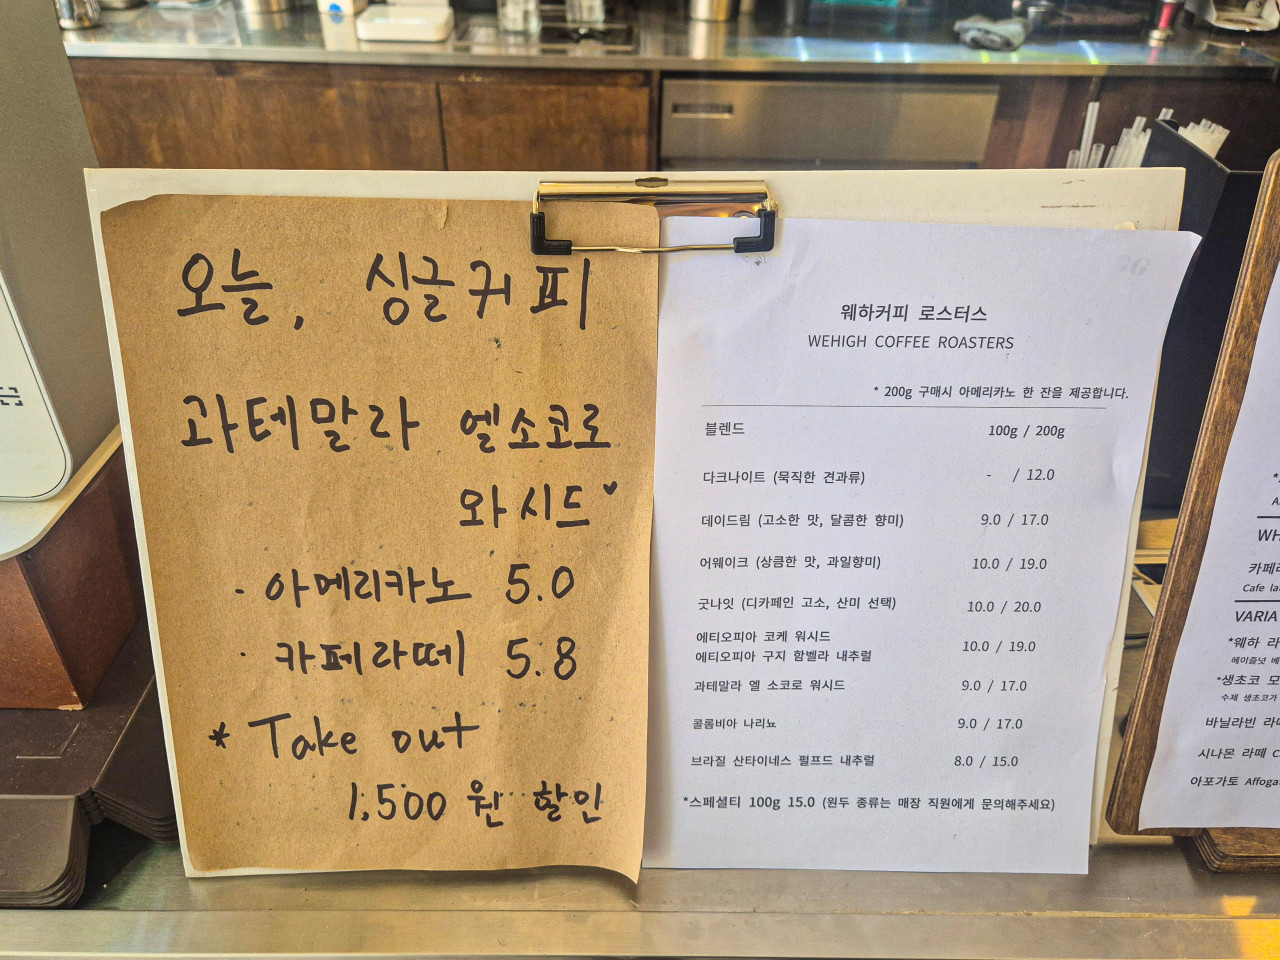 오늘, 싱글커피
과테말라 엘소코로
와시드
· 아메리카노 5.0
· 카페라떼 5.8
* Take out
1,500 원 할인
웨하커피 로스터스
WEHIGH COFFEE ROASTERS
* 200g 구매시 아메리카노 한 잔을 제공합니다.
블렌드 100g / 200g
다크나이트 (묵직한 견과류) - / 12.0
데이드림 (고소한 맛, 달콤한 향미) 9.0 / 17.0
어웨이크 (상큼한 맛, 과일향미) 10.0 / 19.0
굿나잇 (디카페인 고소, 산미 선택) 10.0 / 20.0
에티오피아 코케 워시드
에티오피아 구지 함벨라 내추럴 10.0 / 19.0
과테말라 엘 소코로 워시드 9.0 / 17.0
콜롬비아 나리뇨 9.0 / 17.0
브라질 산타이네스 펄프드 내추럴 8.0 / 15.0
*스페셜티 100g 15.0 (원두 종류는 매장 직원에게 문의해주세요)
WH
카페라
Cafe la
VARIA
*웨하 라
헤이즐넛 베
*생초코 모
수제 생초코가
바닐라빈 라떼
시나몬 라떼 C
아포가토 Affoga